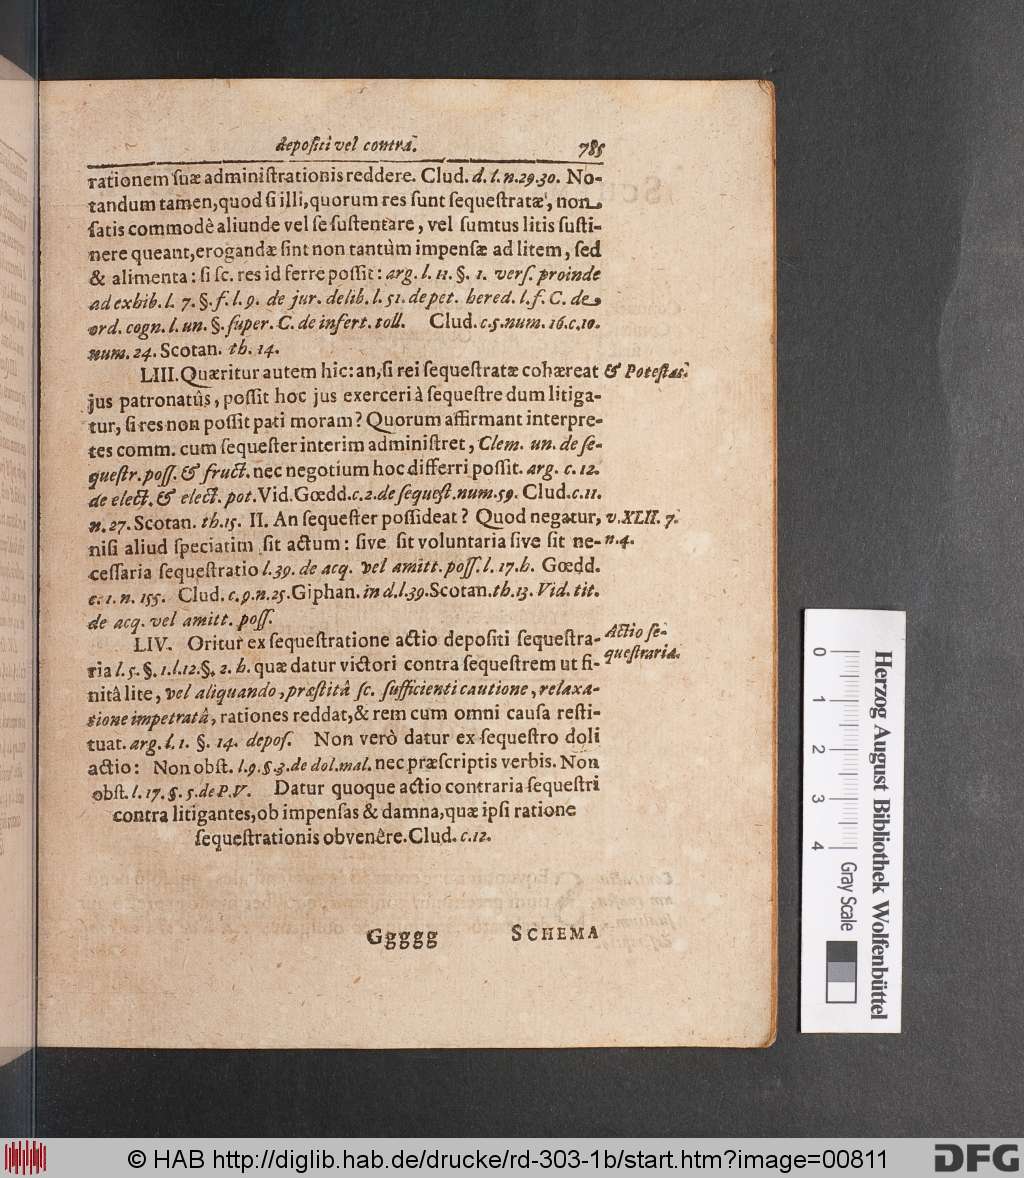 depositi vel contra. 785
rationem ſuæ adminiſtrationis reddere. Clud. d. l. n. 29. 30. No-
tandum tamen, quod ſi illi, quorum res ſunt ſequeſtratæ, non
ſatis commodè aliunde vel ſe ſuſtentare, vel ſumtus litis ſuſti-
nere queant, erogandæ ſint non tantùm impenſæ ad litem, ſed
& alimenta: ſi ſc. res id ferre poſſit: arg. l. 11. §. 1. verſ. proinde
ad exhib. l. 7. §. f. l. 9. de jur. delib. l. 51. de pet. hered. l. f. C. de
ord. cogn. l. un. §. ſuper. C. de infert. toll. Clud. c. 5. num. 16. c. 10.
num. 24. Scotan. th. 14.
LIII. Quæritur autem hic: an, ſi rei ſequeſtratæ cohæreat & Poteſtas:
jus patronatûs, poſſit hoc jus exerceri à ſequeſtre dum litiga-
tur, ſi res non poſſit pati moram? Quorum affirmant interpre-
tes comm. cum ſequeſter interim adminiſtret, Clem. un. de ſe-
queſtr. poſſ. & fruct. nec negotium hoc differri poſſit. arg. c. 12.
de elect. & elect. pot. Vid. Gœdd. c. 2. de ſequeſt. num. 59. Clud. c. 11.
n. 27. Scotan. th. 15. II. An ſequeſter poſſideat? Quod negatur, v. XLII. 7.
niſi aliud ſpeciatim ſit actum: ſive ſit voluntaria ſive ſit ne- n. 4.
ceſſaria ſequeſtratio l. 39. de acq. vel amitt. poſſ. l. 17. h. Gœdd.
c. 1. n. 155. Clud. c. 9. n. 25. Giphan. in d. l. 39. Scotan. th. 13. Vid. tit.
de acq. vel amitt. poſſ.
LIV. Oritur ex ſequeſtratione actio depoſiti ſequeſtra- Actio ſe-
ria l. 5. §. 1. l. 12. §. 2. h. quæ datur victori contra ſequeſtrem ut fi- queſtraria.
nitâ lite, vel aliquando, præſtitâ ſc. ſufficienti cautione, relaxa-
tione impetratâ, rationes reddat, & rem cum omni cauſa reſti-
tuat. arg. l. 1. §. 14. depoſ. Non verò datur ex ſequeſtro doli
actio: Non obſt. l. 9. §. 3. de dol. mal. nec præſcriptis verbis. Non
obſt. l. 17. §. 5. de P. V. Datur quoque actio contraria ſequeſtri
contra litigantes, ob impenſas & damna, quæ ipſi ratione
ſequeſtrationis obvenêre. Clud. c. 12.
Ggggg SCHEMA
0 1 2 3 4
Herzog August Bibliothek Wolfenbüttel
Gray Scale
© HAB http://diglib.hab.de/drucke/rd-303-1b/start.htm?image=00811
DFG